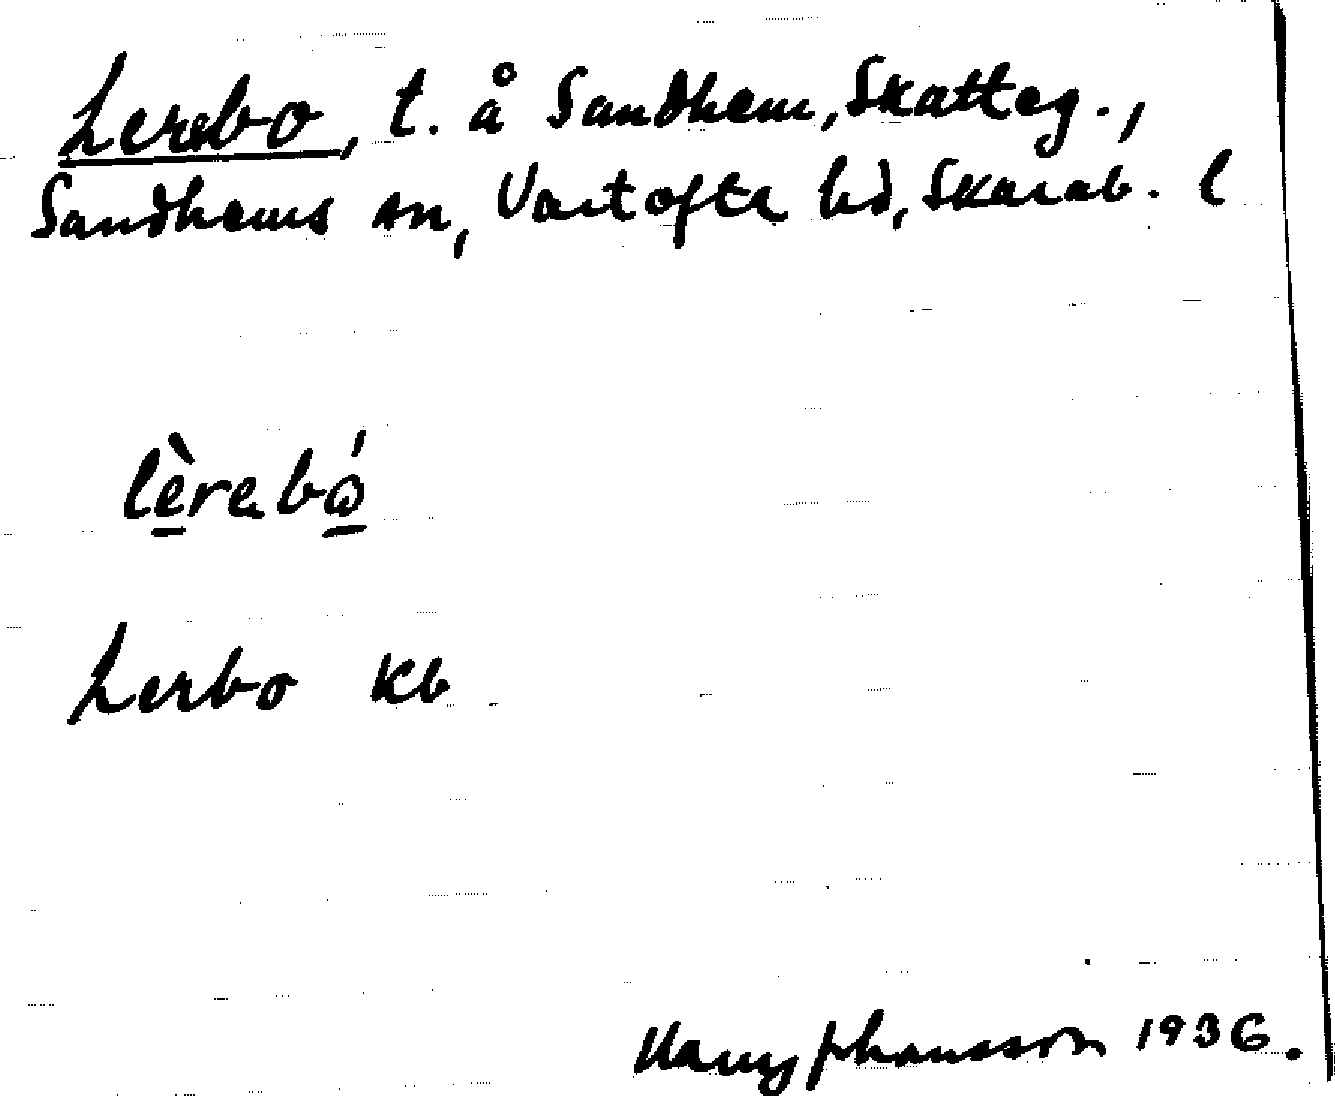 Lerebo, t. å Sandhem, Skatteg.,
Sandhems sn, Vartofta hd, Skarab. l
lèrabó
Lerbo kb
Harry Johansson 1936.